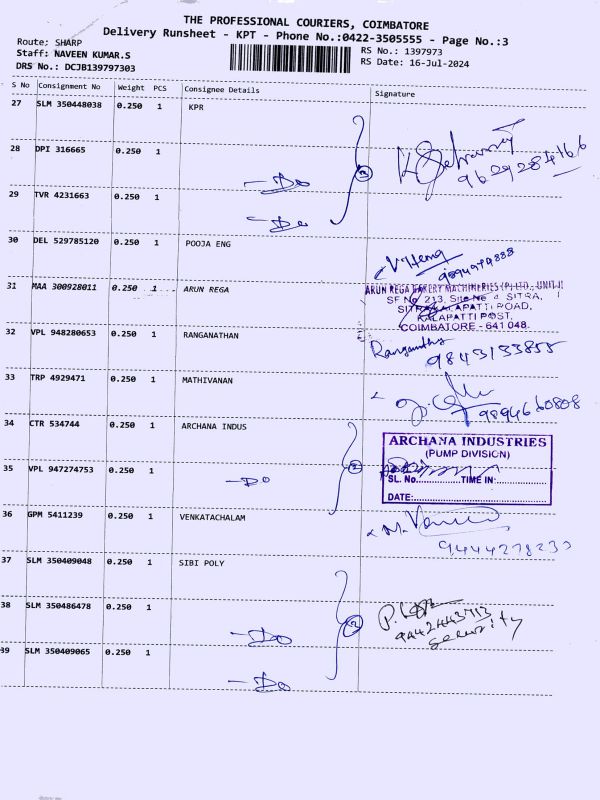 THE PROFESSIONAL COURIERS, COIMBATORE
Delivery Runsheet - KPT - Phone No.:0422-3505555 - Page No.:3
Route: SHARP
Staff: NAVEEN KUMAR.S
DRS No.: DCJB139797303
RS No.: 1397973
RS Date: 16-Jul-2024
S No Consignment No Weight PCS Consignee Details Signature
27 SLM 350448038 0.250 1 KPR
28 DPI 316665 0.250 1 - Do
9629284166
29 TVR 4231663 0.250 1 - Do
3
30 DEL 529785120 0.250 1 POOJA ENG
31 MAA 300928011 0.250 1 ARUN REGA
ARUN REGA BAKERY MACHINERIES (P) LTD., UNIT II
SF No 213, Site No 4 SITRA,
KALAPATTI ROAD,
KALAPATTI POST,
COIMBATORE - 641 048.
32 VPL 948280653 0.250 1 RANGANATHAN
9843133855
33 TRP 4929471 0.250 1 MATHIVANAN
9894660808
34 CTR 534744 0.250 1 ARCHANA INDUS
ARCHANA INDUSTRIES
(PUMP DIVISION)
SL. No.............TIME IN:.............
DATE:
35 VPL 947274753 0.250 1 - Do
2
36 GPM 5411239 0.250 1 VENKATACHALAM
9444278230
37 SLM 350409048 0.250 1 SIBI POLY
38 SLM 350486478 0.250 1 - Do
3
9442443713
Security
39 SLM 350409065 0.250 1 - Do